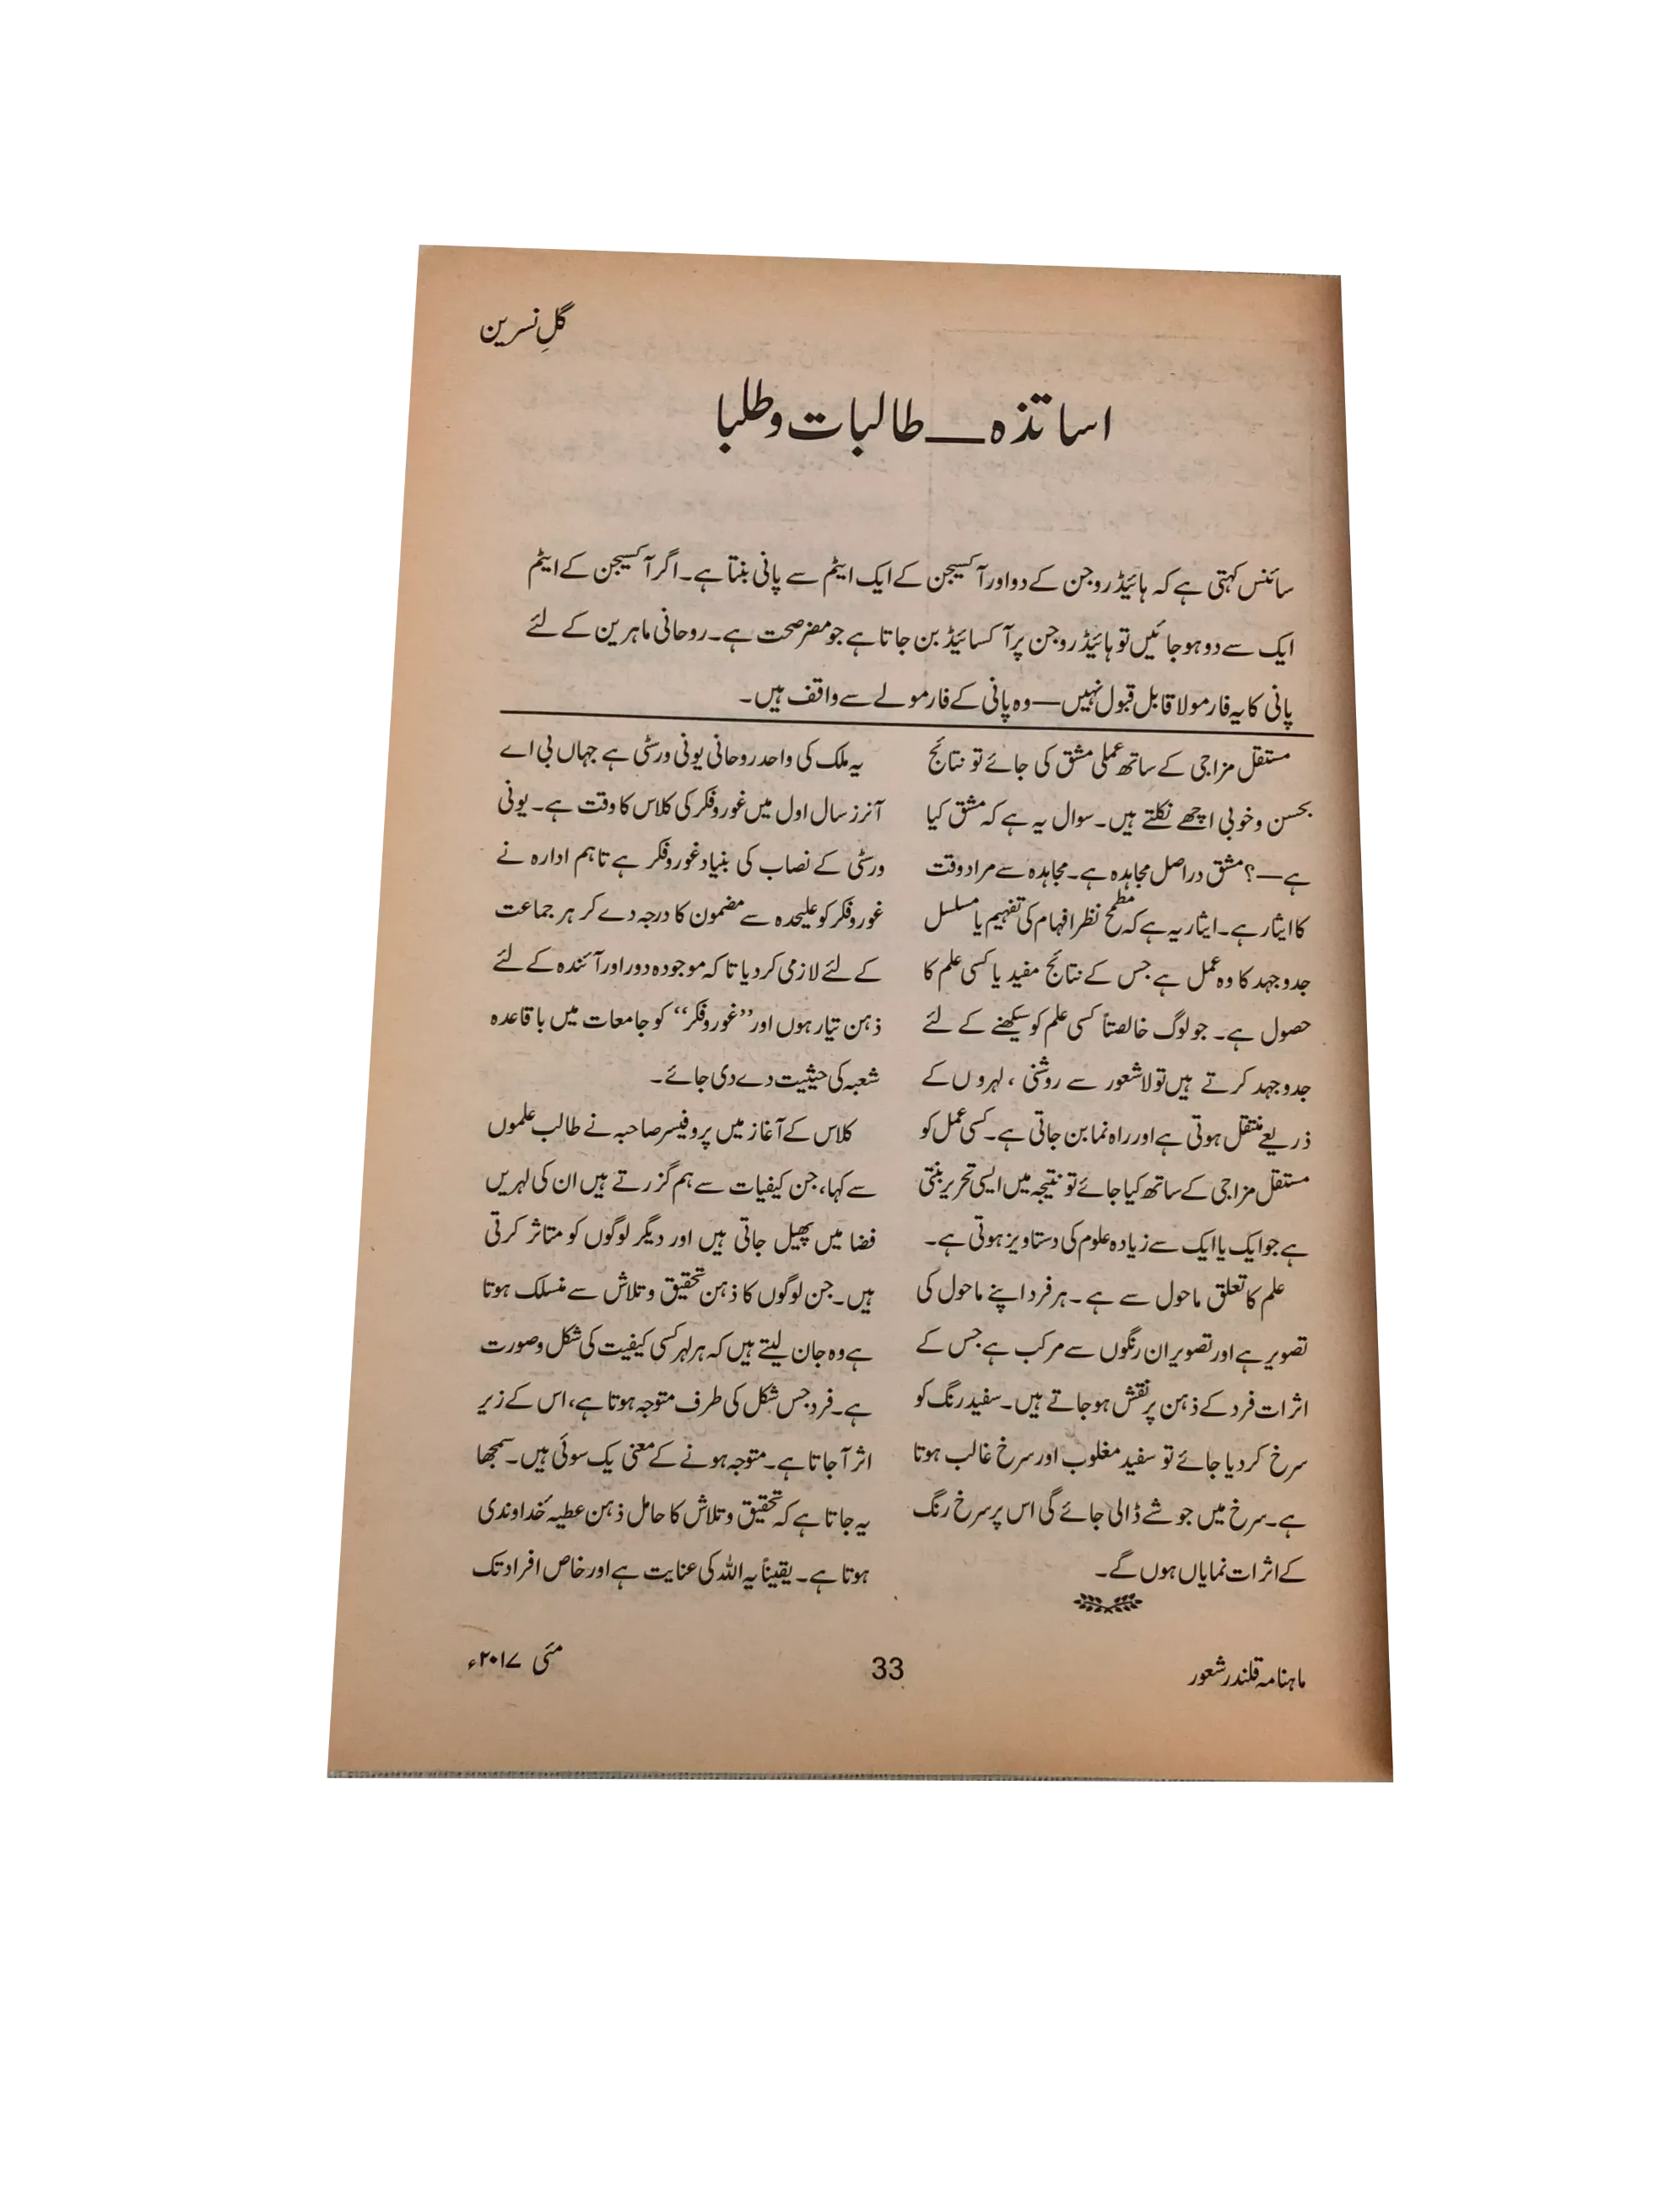 گلِ نسرین
اساتذہ — طالبات و طلبا
سائنس کہتی ہے کہ ہائیڈروجن کے دو اور آکسیجن کے ایک ایٹم سے پانی بنتا ہے۔ اگر آکسیجن کے ایٹم
ایک سے دو ہو جائیں تو ہائیڈروجن پر آکسائیڈ بن جاتا ہے جو مضر صحت ہے۔ روحانی ماہرین کے لئے
پانی کا یہ فارمولا قابل قبول نہیں — وہ پانی کے فارمولے سے واقف ہیں۔
مستقل مزاجی کے ساتھ عملی مشق کی جائے تو نتائج
بحسن و خوبی اچھے نکلتے ہیں۔ سوال یہ ہے کہ مشق کیا
ہے —؟ مشق دراصل مجاہدہ ہے۔ مجاہدہ سے مراد وقت
کا ایثار ہے۔ ایثار یہ ہے کہ مطمح نظر افہام کی تفہیم یا مسلسل
جدوجہد کا وہ عمل ہے جس کے نتائج مفید یا کسی علم کا
حصول ہے۔ جو لوگ خالصتاً کسی علم کو سیکھنے کے لئے
جدوجہد کرتے ہیں تو لاشعور سے روشنی، لہروں کے
ذریعے منتقل ہوتی ہے اور راہ نما بن جاتی ہے۔ کسی عمل کو
مستقل مزاجی کے ساتھ کیا جائے تو نتیجہ میں ایسی تحریر بنتی
ہے جو ایک یا ایک سے زیادہ علوم کی دستاویز ہوتی ہے۔
علم کا تعلق ماحول سے ہے۔ ہر فرد اپنے ماحول کی
تصویر ہے اور تصویر ان رنگوں سے مرکب ہے جس کے
اثرات فرد کے ذہن پر نقش ہو جاتے ہیں۔ سفید رنگ کو
سرخ کر دیا جائے تو سفید مغلوب اور سرخ غالب ہوتا
ہے۔ سرخ میں جو شے ڈالی جائے گی اس پر سرخ رنگ
کے اثرات نمایاں ہوں گے۔
یہ ملک کی واحد روحانی یونی ورسٹی ہے جہاں بی اے
آنرز سال اول میں غور و فکر کی کلاس کا وقت ہے۔ یونی
ورسٹی کے نصاب کی بنیاد غور و فکر ہے تاہم ادارہ نے
غور و فکر کو علیحدہ سے مضمون کا درجہ دے کر ہر جماعت
کے لئے لازمی کر دیا تا کہ موجودہ دور اور آئندہ کے لئے
ذہن تیار ہوں اور ”غور و فکر“ کو جامعات میں باقاعدہ
شعبہ کی حیثیت دے دی جائے۔
کلاس کے آغاز میں پروفیسر صاحبہ نے طالب علموں
سے کہا، جن کیفیات سے ہم گزرتے ہیں ان کی لہریں
فضا میں پھیل جاتی ہیں اور دیگر لوگوں کو متاثر کرتی
ہیں۔ جن لوگوں کا ذہن تحقیق و تلاش سے منسلک ہوتا
ہے وہ جان لیتے ہیں کہ ہر لہر کسی کیفیت کی شکل و صورت
ہے۔ فرد جس شکل کی طرف متوجہ ہوتا ہے، اس کے زیر
اثر آ جاتا ہے۔ متوجہ ہونے کے معنی یک سوئی ہیں۔ سمجھا
یہ جاتا ہے کہ تحقیق و تلاش کا حامل ذہن عطیہ خداوندی
ہوتا ہے۔ یقیناً یہ اللہ کی عنایت ہے اور خاص افراد تک
ماہنامہ قلندر شعور
33
مئی ۲۰۱۷ء